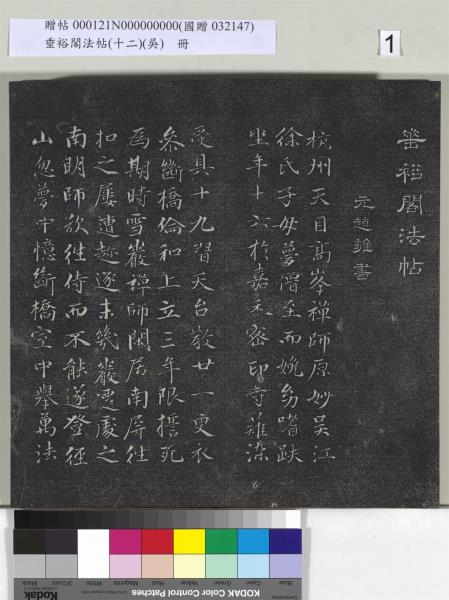 贈帖 000121N000000000(國贈 032147)
垂裕閣法帖(十二)(吳) 冊
1
垂裕閣法帖
元趙雍書
杭州天目高峯禪師原妙吳江
徐氏子母夢僧至而娩幼嗜趺
坐年十六於嘉禾密印寺薙染
受具十九習天台教廿一更衣
參斷橋倫和上立三年限誓死
為期時雪巖禪師閑居南屏往
扣之屢遭趂逐未幾巖遷處之
南明師欲往侍而不能遂登徑
山忽夢中憶斷橋室中舉萬法
Blue Cyan Green Yellow Red Magenta White 3/Color Black
KODAK Color Control Patches